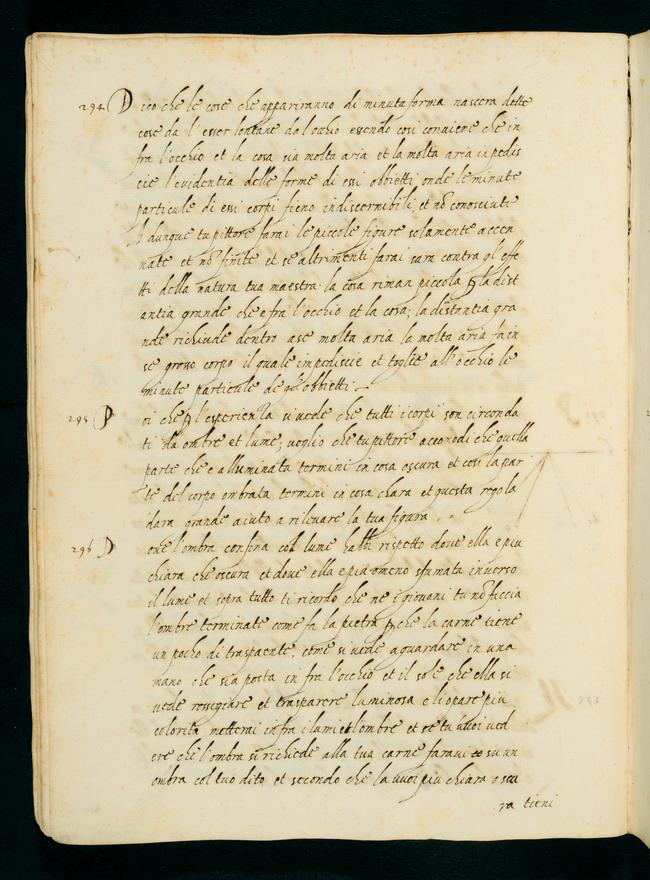 294 Dico che le cose che appariranno di minuta forma nascera dette
cose da l'esser lontane dal ochio essendo cosi conviene che in
fra l'occhio et la cosa sia molta aria et la molta aria inpedis
cie l'evidentia delle forme di essi obbietti onde le minute
particule di essi corpi fieno indiscernibili, et nō conosciute
Adunque tu pittore farai le piccole figure solamente accen
nate et nō finite et se altrimenti farai sara contra gl'effe
tti della natura tua maestra. la cosa riman piccola ꝑ la dist
antia grande che e fra l'occhio et la cosa; la distantia gra
nde richiude dentro a se molta aria la molta aria fa in
se grosso corpo il quale impediscie et toglie all'occhio le
minute particule de gli obbietti.
295 Poi che ꝑ l'esperienza si vede che tutti i corpi son circonda
ti da ombre et lume; voglio che tu pittore accomodi che quella
parte che e alluminata termini in cosa oscura et cosi la par
te del corpo ombrata termini in cosa chara et questa regola
dara grande aiuto a rilevare la tua figura.
296 Dove l'ombra confina col lume habbi rispetto dove ella e piu
chiara che oscura et dove ella e piu o meno sfumata inverso
il lume et sopra tutto ti ricordo che ne i giovani tu nō faccia
l'ombre terminate come fa la pietra ꝑche la carne tiene
un pocho di traspaente, come si vede a guardare in una
mano che sia posta in fra l'occhio et il sole che ella si
vede rossegiare et trasparere luminosa e li opare piu
colorita metterai infra i lumi et l'ombre et se tu vuoi ved
ere che l'ombra si richiede alla tua carne faravi su un
ombra col tuo dito et secondo che la vuoi piu chiara o scu
ra tieni